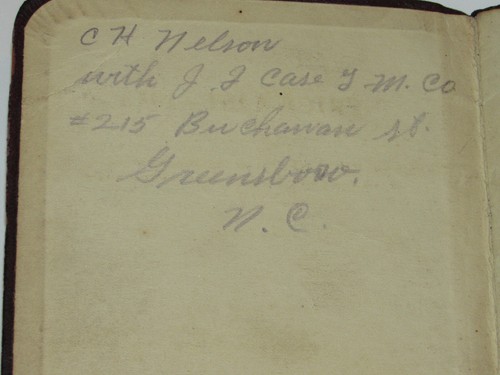 C H Nelson
with J I Case T M. Co
#215 Buchanan st.
Greensboro.
N. C.